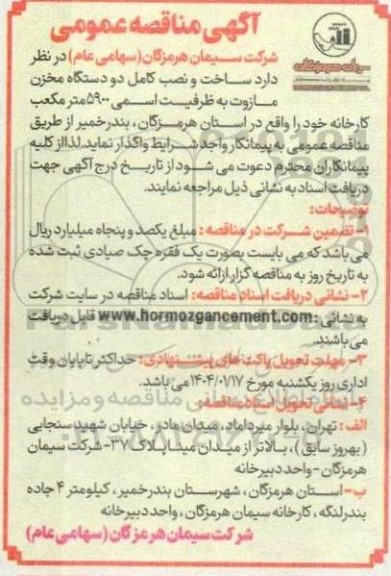 آگهی مناقصه عمومی
شرکت سیمان هرمزگان (سهامی عام) در نظر
دارد ساخت و نصب کامل دو دستگاه مخزن
مازوت به ظرفیت اسمی ۵۹۰۰ متر مکعب
کارخانه خود را واقع در استان هرمزگان، بندرخمیر از طریق
مناقصه عمومی به پیمانکار واجد شرایط واگذار نماید. لذا از کلیه
پیمانکاران محترم دعوت می شود از تاریخ درج آگهی جهت
دریافت اسناد به نشانی ذیل مراجعه نمایند.
توضیحات:
۱- تضمین شرکت در مناقصه: مبلغ یکصد و پنجاه میلیارد ریال
می باشد که می بایست بصورت یک فقره چک صیادی ثبت شده
به تاریخ روز به مناقصه گزار ارائه شود.
۲- نشانی دریافت اسناد مناقصه: اسناد مناقصه در سایت شرکت
به نشانی: www.hormozgancement.com قابل دریافت
می باشند.
۳- مهلت تحویل پاکت های پیشنهادی: حداکثر تا پایان وقت
اداری روز یکشنبه مورخ ۱۴۰۴/۰۱/۱۷ می باشد.
۴- نشانی تحویل اسناد مناقصه:
الف: تهران، بلوار میرداماد، میدان مادر، خیابان شهید سنجابی
(بهروز سابق)، بالاتر از میدان مینا پلاک ۳۷- شرکت سیمان
هرمزگان - واحد دبیرخانه
ب- استان هرمزگان، شهرستان بندرخمیر، کیلومتر ۴ جاده
بندرلنگه، کارخانه سیمان هرمزگان، واحد دبیرخانه
شرکت سیمان هرمزگان (سهامی عام)